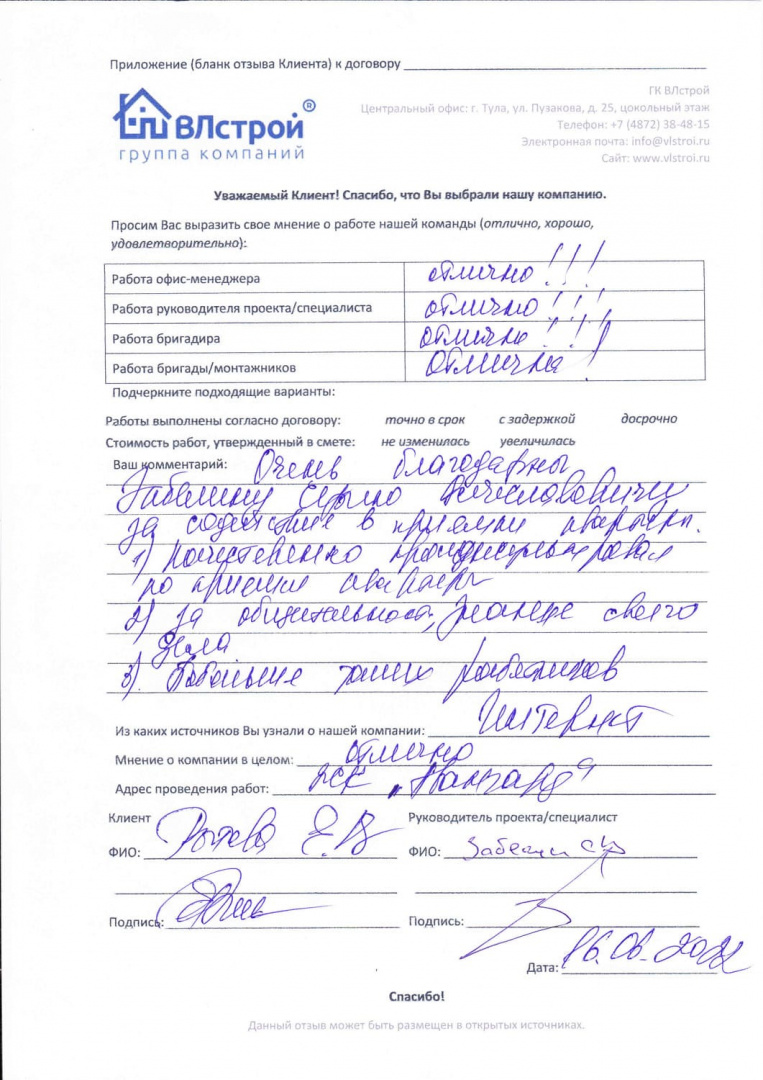 Приложение (бланк отзыва Клиента) к договору
ГК ВЛстрой
Центральный офис: г. Тула, ул. Пузакова, д. 25, цокольный этаж
Телефон: +7 (4872) 38-48-15
Электронная почта: info@vlstroi.ru
Сайт: www.vlstroi.ru
ВЛстрой ®
группа компаний
Уважаемый Клиент! Спасибо, что Вы выбрали нашу компанию.
Просим Вас выразить свое мнение о работе нашей команды (отлично, хорошо,
удовлетворительно):
Работа офис-менеджера отлично!!!
Работа руководителя проекта/специалиста отлично!!!
Работа бригадира отлично!!!
Работа бригады/монтажников отлично!
Подчеркните подходящие варианты:
Работы выполнены согласно договору: точно в срок с задержкой досрочно
Стоимость работ, утвержденный в смете: не изменилась увеличилась
Ваш комментарий: Очень благодарны
Забелину Сергею Вячеславовичу
за содействие в приемки квартиры.
1) Качественно проконсультировал
по приемки квартиры
2) За общительность, знание своего
дела
3) Побольше таких работников
Из каких источников Вы узнали о нашей компании: Интернет
Мнение о компании в целом: отлично
Адрес проведения работ: ЖК "Авангард"
Клиент Руководитель проекта/специалист
ФИО: Е.В. ФИО: Забелин С.В.
Подпись: Подпись:
Дата: 16.06.2022
Спасибо!
Данный отзыв может быть размещен в открытых источниках.